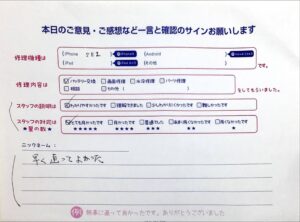 本日のご意見・ご感想など一言と確認のサインお願いします
修理機種は
(iPhone SE2 ) (Android )
(iPad ) (その他 ) です。
修理内容は
☑バッテリー交換 □画面修理 □水没修理 □パーツ修理
□相談 □その他( ) をしてもらいました。
スタッフの説明は
☑わかりやすかったです □理解できました □少しわかりにくかったです □難しかったです
スタッフの対応は
★星の数★
☑とても良かったです □良かったです □普通でした □あまり良くなかったです □良くなかったです
★★★★★ ★★★★ ★★★ ★★ ★
ニックネーム:
早く直ってよかった
無事に直って良かったです。ありがとうございました